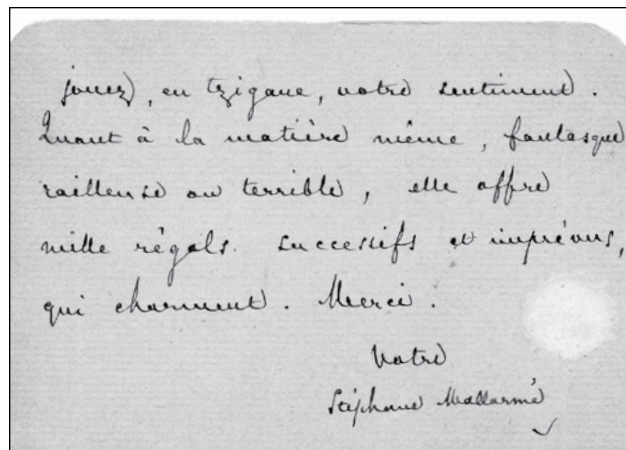 jouez, en tzigane, votre sentiment.
Quant à la matière même, fantasque
railleuse ou terrible, elle offre
mille régals successifs et imprévus,
qui charment. Merci.
Votre
Stéphane Mallarmé